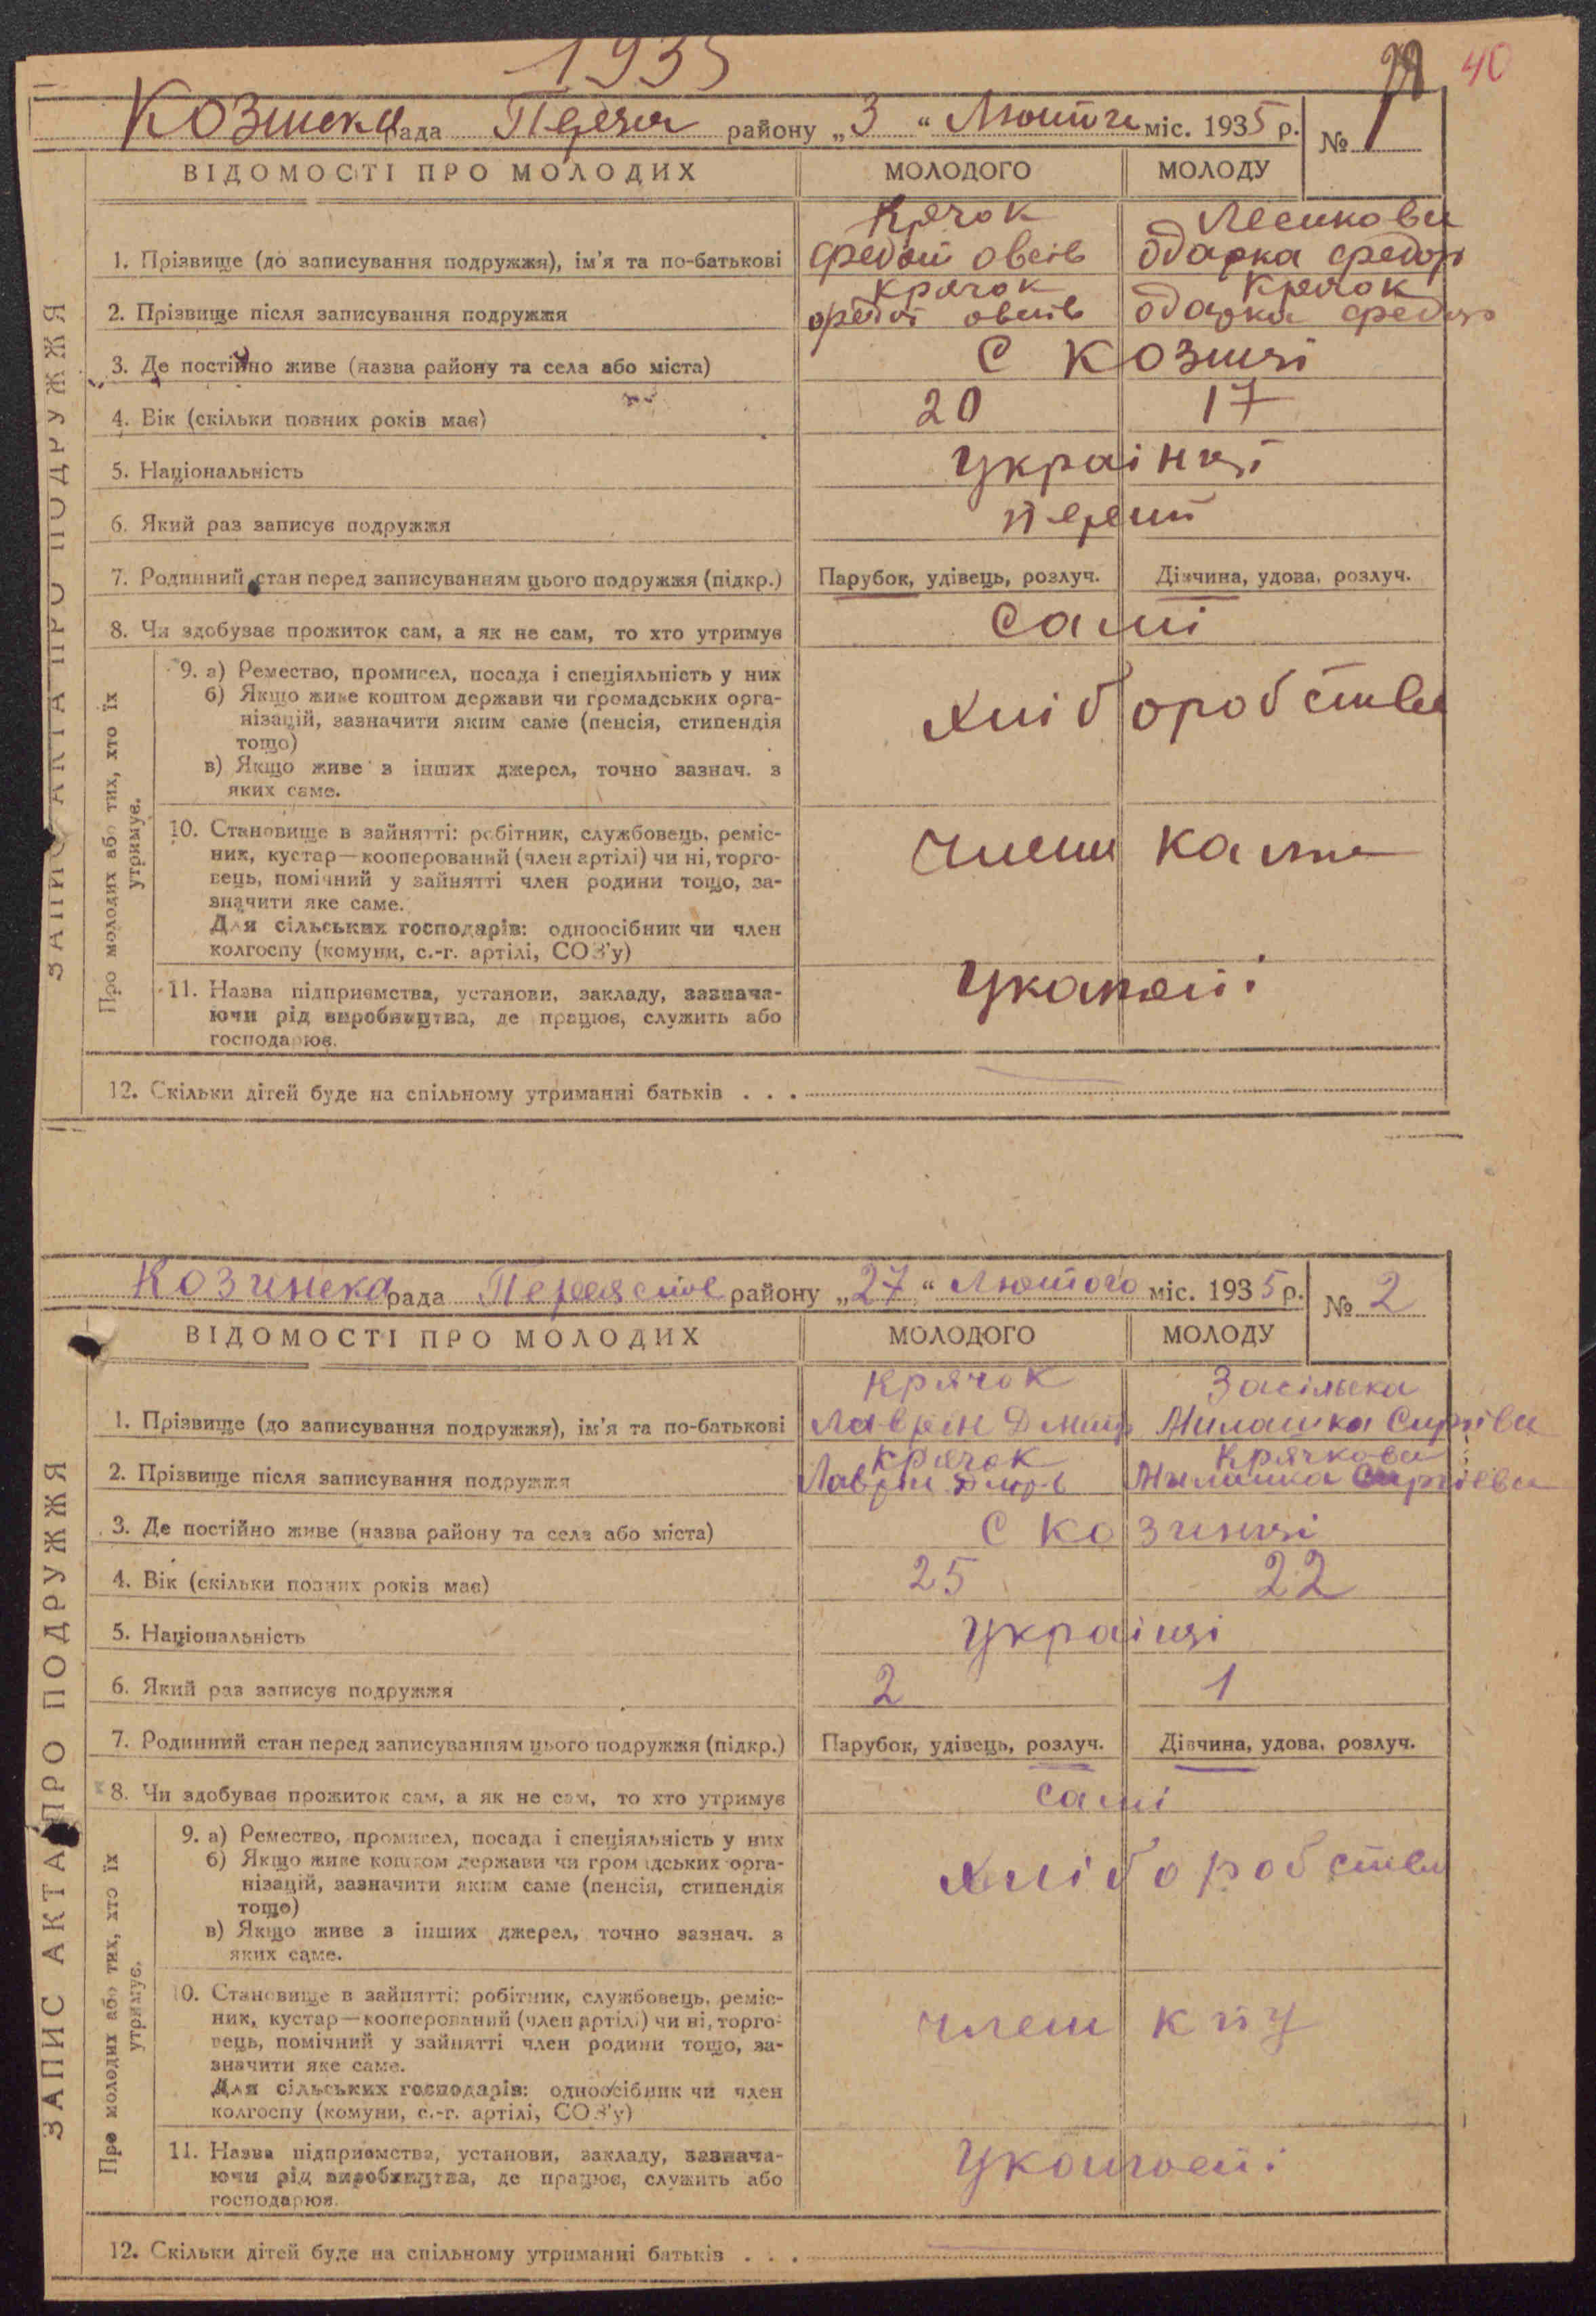 1935
40
Козинска рада Переяс району „3“ Лютого міс. 1935 р. № 1
ВІДОМОСТІ ПРО МОЛОДИХ МОЛОДОГО МОЛОДУ
Крячок Лесикова
1. Прізвище (до записування подружжя), ім'я та по-батькові Федот Овсів Одарка Федор
Крячок Крячок
2. Прізвище після записування подружжя Федот Овсіїв Одарка Федор
3. Де постійно живе (назва району та села або міста) С Козинці
4. Вік (скільки повних років має) 20 17
5. Національність Українці
6. Який раз записує подружжя перший
7. Родинний стан перед записуванням цього подружжя (підкр.) Парубок, удівець, розлуч. Дівчина, удова, розлуч.
8. Чи здобуває прожиток сам, а як не сам, то хто утримує самі
9. а) Ремество, промисел, посада і спеціяльність у них
б) Якщо живе коштом держави чи громадських орга-
нізацій, зазначити яким саме (пенсія, стипендія
тощо)
в) Якщо живе з інших джерел, точно зазнач. з
яких саме.
хліборобства
10. Становище в зайнятті: робітник, службовець, реміс-
ник, кустар—кооперований (член артілі) чи ні, торго-
вець, помічний у зайнятті член родини тощо, за-
значити яке саме.
Для сільських господарів: одноосібник чи член
колгоспу (комуни, с.-г. артілі, СОЗ'у)
члени
11. Назва підприємства, установи, закладу, зазнача-
ючи рід виробництва, де працює, служить або
господарює.
12. Скільки дітей буде на спільному утриманні батьків . . .
ЗАПИС АКТА ПРО ПОДРУЖЖЯ
Про молодих або тих, хто їх
утримує.
Козинска рада Переяслве району „27“ Лютого міс. 1935 р. № 2
ВІДОМОСТІ ПРО МОЛОДИХ МОЛОДОГО МОЛОДУ
Крячок Засільска
1. Прізвище (до записування подружжя), ім'я та по-батькові Лаврін Дмитр Милашка Сиргіва
Крячок Крячкова
2. Прізвище після записування подружжя Лаврін Милашка Сиргіева
3. Де постійно живе (назва району та села або міста) С Козинці
4. Вік (скільки повних років має) 25 22
5. Національність Українці
6. Який раз записує подружжя 2 1
7. Родинний стан перед записуванням цього подружжя (підкр.) Парубок, удівець, розлуч. Дівчина, удова, розлуч.
8. Чи здобуває прожиток сам, а як не сам, то хто утримує самі
9. а) Ремество, промисел, посада і спеціяльність у них
б) Якщо живе коштом держави чи громадських орга-
нізацій, зазначити яким саме (пенсія, стипендія
тощо)
в) Якщо живе з інших джерел, точно зазнач. з
яких саме.
хліборобства
10. Становище в зайнятті: робітник, службовець, реміс-
ник, кустар—кооперований (член артілі) чи ні, торго-
вець, помічний у зайнятті член родини тощо, за-
значити яке саме.
Для сільських господарів: одноосібник чи член
колгоспу (комуни, с.-г. артілі, СОЗ'у)
члени
11. Назва підприємства, установи, закладу, зазнача-
ючи рід виробництва, де працює, служить або
господарює.
12. Скільки дітей буде на спільному утриманні батьків . . .
ЗАПИС АКТА ПРО ПОДРУЖЖЯ
Про молодих або тих, хто їх
утримує.